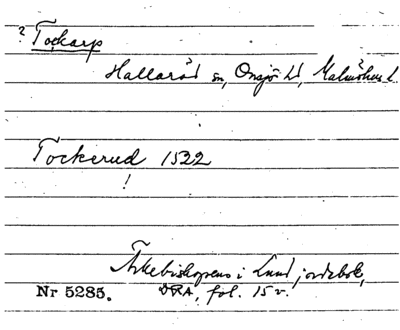 ? Tockarp
Hallaröd sn, Onsjö hd, Malmöhus l.
Tockerud 1522
!
Ärkebiskopens i Lund jordebok,
Nr 5285. DRA, fol. 15 v.